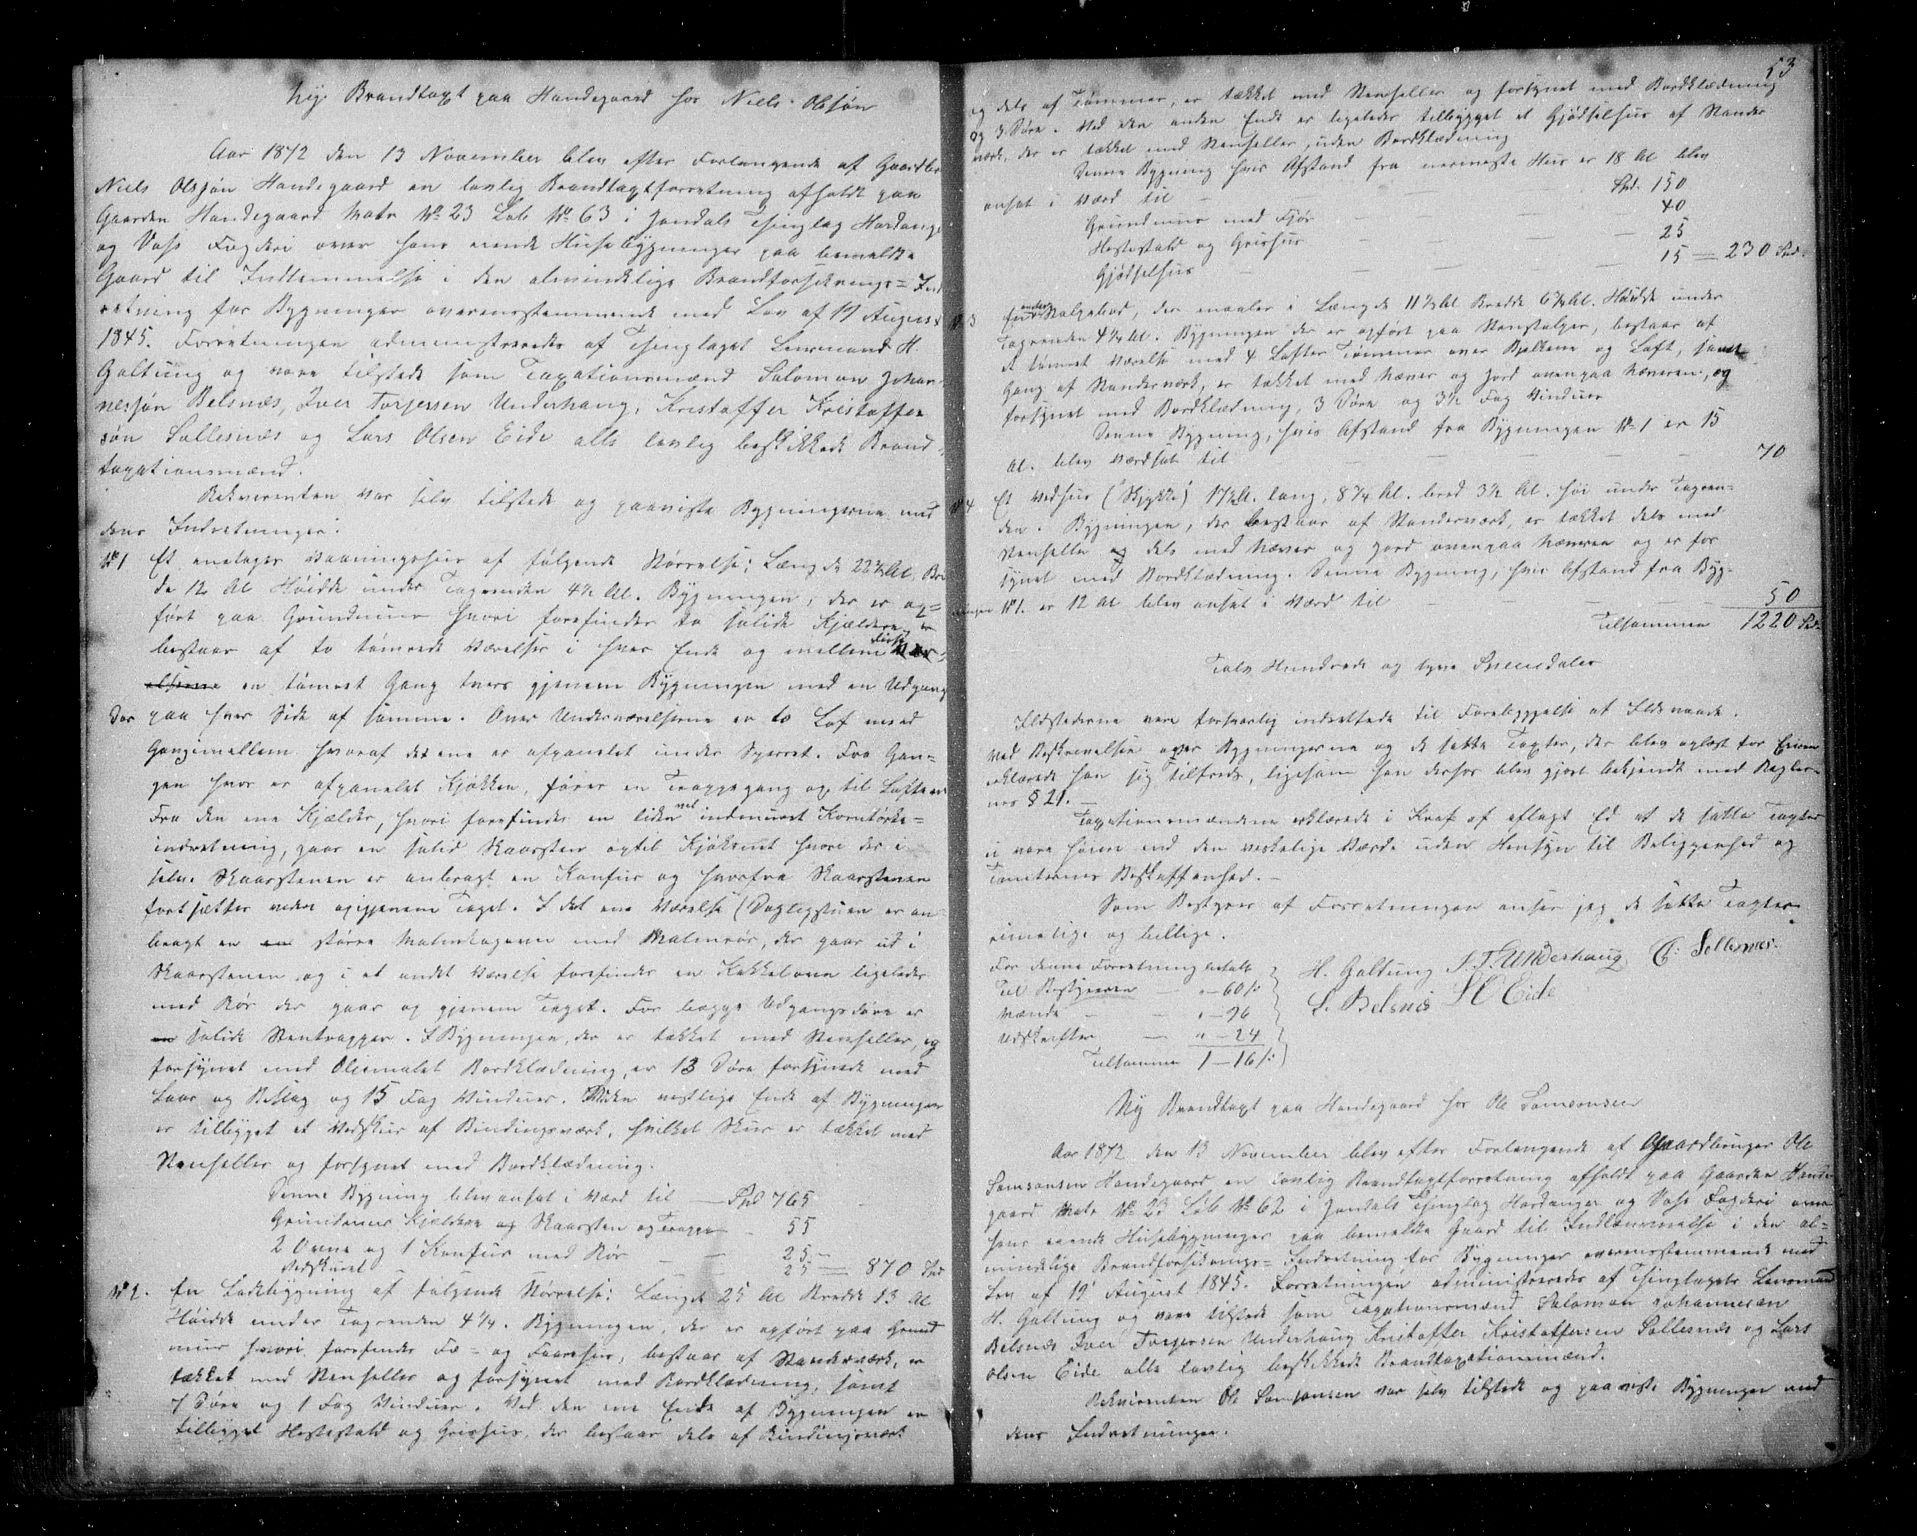 Ny Brandtaxt paa Handegaard hos Niels Olsøn
Aar 1872 den 13 November blev efter Forlangende af Gaardbr
Niels Olssøn Handegaard en lovlig Brandtaxtforretning afholdt paa
Gaarden Handegaard Matr No 23 Løb No 63 i Jondals Thinglag Hardang
og Voss Fogderi over hans eiende Husebygninger paa bemeldte
Gaard til Indlemmelse i den almindelige Brandforsikrings=Ind
retning for Bygninger overensstemmende med Lov af 19 August
1845. Forretningen administreredes af Thinglaget Lensmand H.
Galtung og vare tilstede som Taxationsmænd Salomon Johan-
nessøn Belsnæs, Iver Torjersen Underhaug, Kristoffer Kristoffer
søn Sollesnæs og Lars Olsen Eide alle lovlig beskikkede Brand-
taxationsmænd.
Rekvirenten var selv tilstede og paaviste Bygningerne med
deres Indretninger:
No 1 Et enetages Vaaningshus af følgende Størrelse: Længde 22½ Al. Bre
de 12 Al Høide under Tagrenden 4½ Al. Bygningen, der er op=
ført paa Grundmur hvori forefindes to solide Kjældere, er
bestaar af to tømrede Værelser i hver Ende og mellem disse Vær-
elserne en tømret Gang tvers gjenem Bygningen med en Udgang
Dør paa hver Side af samme. Over Underværelserne er to Loft med
Gangimellem hvoraf det ene er afpanelet under Sperret. Fra Gan-
gen hvor er afpanelet Kjøkken, fører en Trappegang op til Lofterne
Fra den ene Kjælder, hvori forefindes en liden vel indmuret Korntørke=
indretning, gaar en solid Skaarsten optil Kjøkenet hvori der i
selve Skaarstenen er anbragt en Komfur og hvorfra Skaarstenen
fortsætter videre opigjenem Taget. I det ene Værelse (Dagligstuen er an-
bragt en en større Malmetageovn med Malmrør, der gaar ud i
Skaarstenen og i et andet Værelse forefindes en Kakkelovn ligeledes
med Rør der gaar op gjenem Taget. For begge Udgangsdøre er
en solide Stentrapper. I Bygningen, der er tækket med Stenheller, og
forsynet med Oliemalet Bordklædning, er 13 Døre forsynede med
Laas og Beslag og 15 Fag Vinduer. Ved den vestlige Ende af Bygningen
er tilbygget et Vedskur af Bindingsværk, hvilket Skur er tækket med
Stenheller og forsynet med Bordklædning.
Denne Bygning blev ansat i Værd til — Spd 765
Grundmur Kjeldere og Skaarsten og Trapper — 55
2 Ovne og 1 Komfur med Rør — 25
Vedskuret — 25 = 870 Spd
No 2. En Ladebygning af følgende Størrelse: Længde 25 Al Bredde 13 Al
Høide under Tagrenden 4¼. Bygningen, der er opført paa Grund
mur hvori forefindes Fæ= og Faarehus, bestaar af Standerværk, er
tækket med Stenheller og forsynet med Bordklædning, samt
7 Døre og 1 Fag Vinduer. Ved den ene Ende af Bygningen er
tilbygget Hestestald og Grisehus, der bestaar dels af Bindingsværk
53
og dels af Tømmer, er tækket med Stenheller og forsynet med Bordklædning
og 3 Døre. Ved den anden Ende er ligeledes tilbygget et Gjødselhus af Stander
værk, der er tækket med Stenheller, uden Bordklædning
Denne Bygning hvis Afstand fra nermeste Hus er 18 Al blev
ansat i Værd til — Spd. 150
Grundmur med Fjøs — 40
Hestestald og Grisehus — 25
Gjødselhus — 15 = 230 Spd.
No 3 En Stolpebod, der maaler i Længde 11½ Al Bredde 6¾ Al. Høide under
Tagrenden 4¼ Al. Bygningen der er opført paa Stenstolper, bestaar af
et tømret Værelse med 4 Lofter Tømmer over Bjelkerne og Loft, samt
Gang af Standerværk, er tækket med Næver og Jord ovenpaa Næveren, og
forsynet med Bordklædning, 3 Døre og 3½ Fag Vinduer
Denne Bygning, hvis Afstand fra Bygningen No 1 er 15
Al. blev værdsat til — 70
No 4 Et Vedhus (Skykke) 17½ Al. lang, 8¾ Al. bred 3½ Al. høi under Tagren-
den. Bygningen, der bestaar af Standerværk, er tækket dels med
Stenheller og dels med Næver og Jord ovenpaa Næveren og er for
synet med Bordklædning. Denne Bygning, hvis Afstand fra Byg-
ningen No 1. er 12 Al blev ansat i Værd til — 50
Tilsammen 1220 Spd.
Tolv Hundrede og tyve Speciedaler
Ildstederne vare forsvarlig indrettede til Forebyggelse af Ildsvaade.
Ved Beskrivelsen over Bygningerne og de satte Taxter, der blev oplæst for Eieren
erklærede han sig tilfreds, ligesom han derhos blev gjort bekjendt med Regler-
nes § 21.—
Taxationsmændene erklærede i Kraf af aflagt Ed at de satte Taxter
ei vare høiere end den virkelige Værdi uden Hensyn til Beliggenhed og
Tomternes Beskaffenhed.—
Som Bestyrer af Forretningen anser jeg de satte Taxter
rimelige og billige.
For denne Forretning betalt
Til Bestyreren — „ — 60 ß
Mænde — „ — 96
Udskrifter — „ — 24
Tilsammen 1 — 16 ß
H. Galtung I. T. Underhaug C. Sollesnæs.
S. Belsnæs L O Eide
Ny Brandtaxt paa Handegaard hos Ole Samsonsen
Aar 1872 den 13 November blev efter Forlangende af Gaardbruger Ole
Samsonsen Handegaard en lovlig Brandtaxtforretning afholdt paa Gaarden Hande
gaard Matr No 23 Løb No 62 i Jondals Thinglag Hardanger og Voss Fogderi over
hans eiende Husebygninger paa bemeldte Gaard til Indlemmelse i den al=
mindelige Brandforsikrings=Indretning for Bygninger overensstemmende med
Lov af 19 August 1845. Forretningen administreredes af Thinglagets Lensmand
H. Galtung og vare tilstede som Taxationsmænd Salomon Johannesen
Belsnæs Iver Torjersen Underhaug Kristoffer Kristoffersen Sollesnæs og Lars
Olsen Eide alle lovlig beskikkede Brandtaxationsmænd.
Rekvirenten Ole Samsonsen var selv tilstede og paaviste Bygninger med
deres Indretninger.